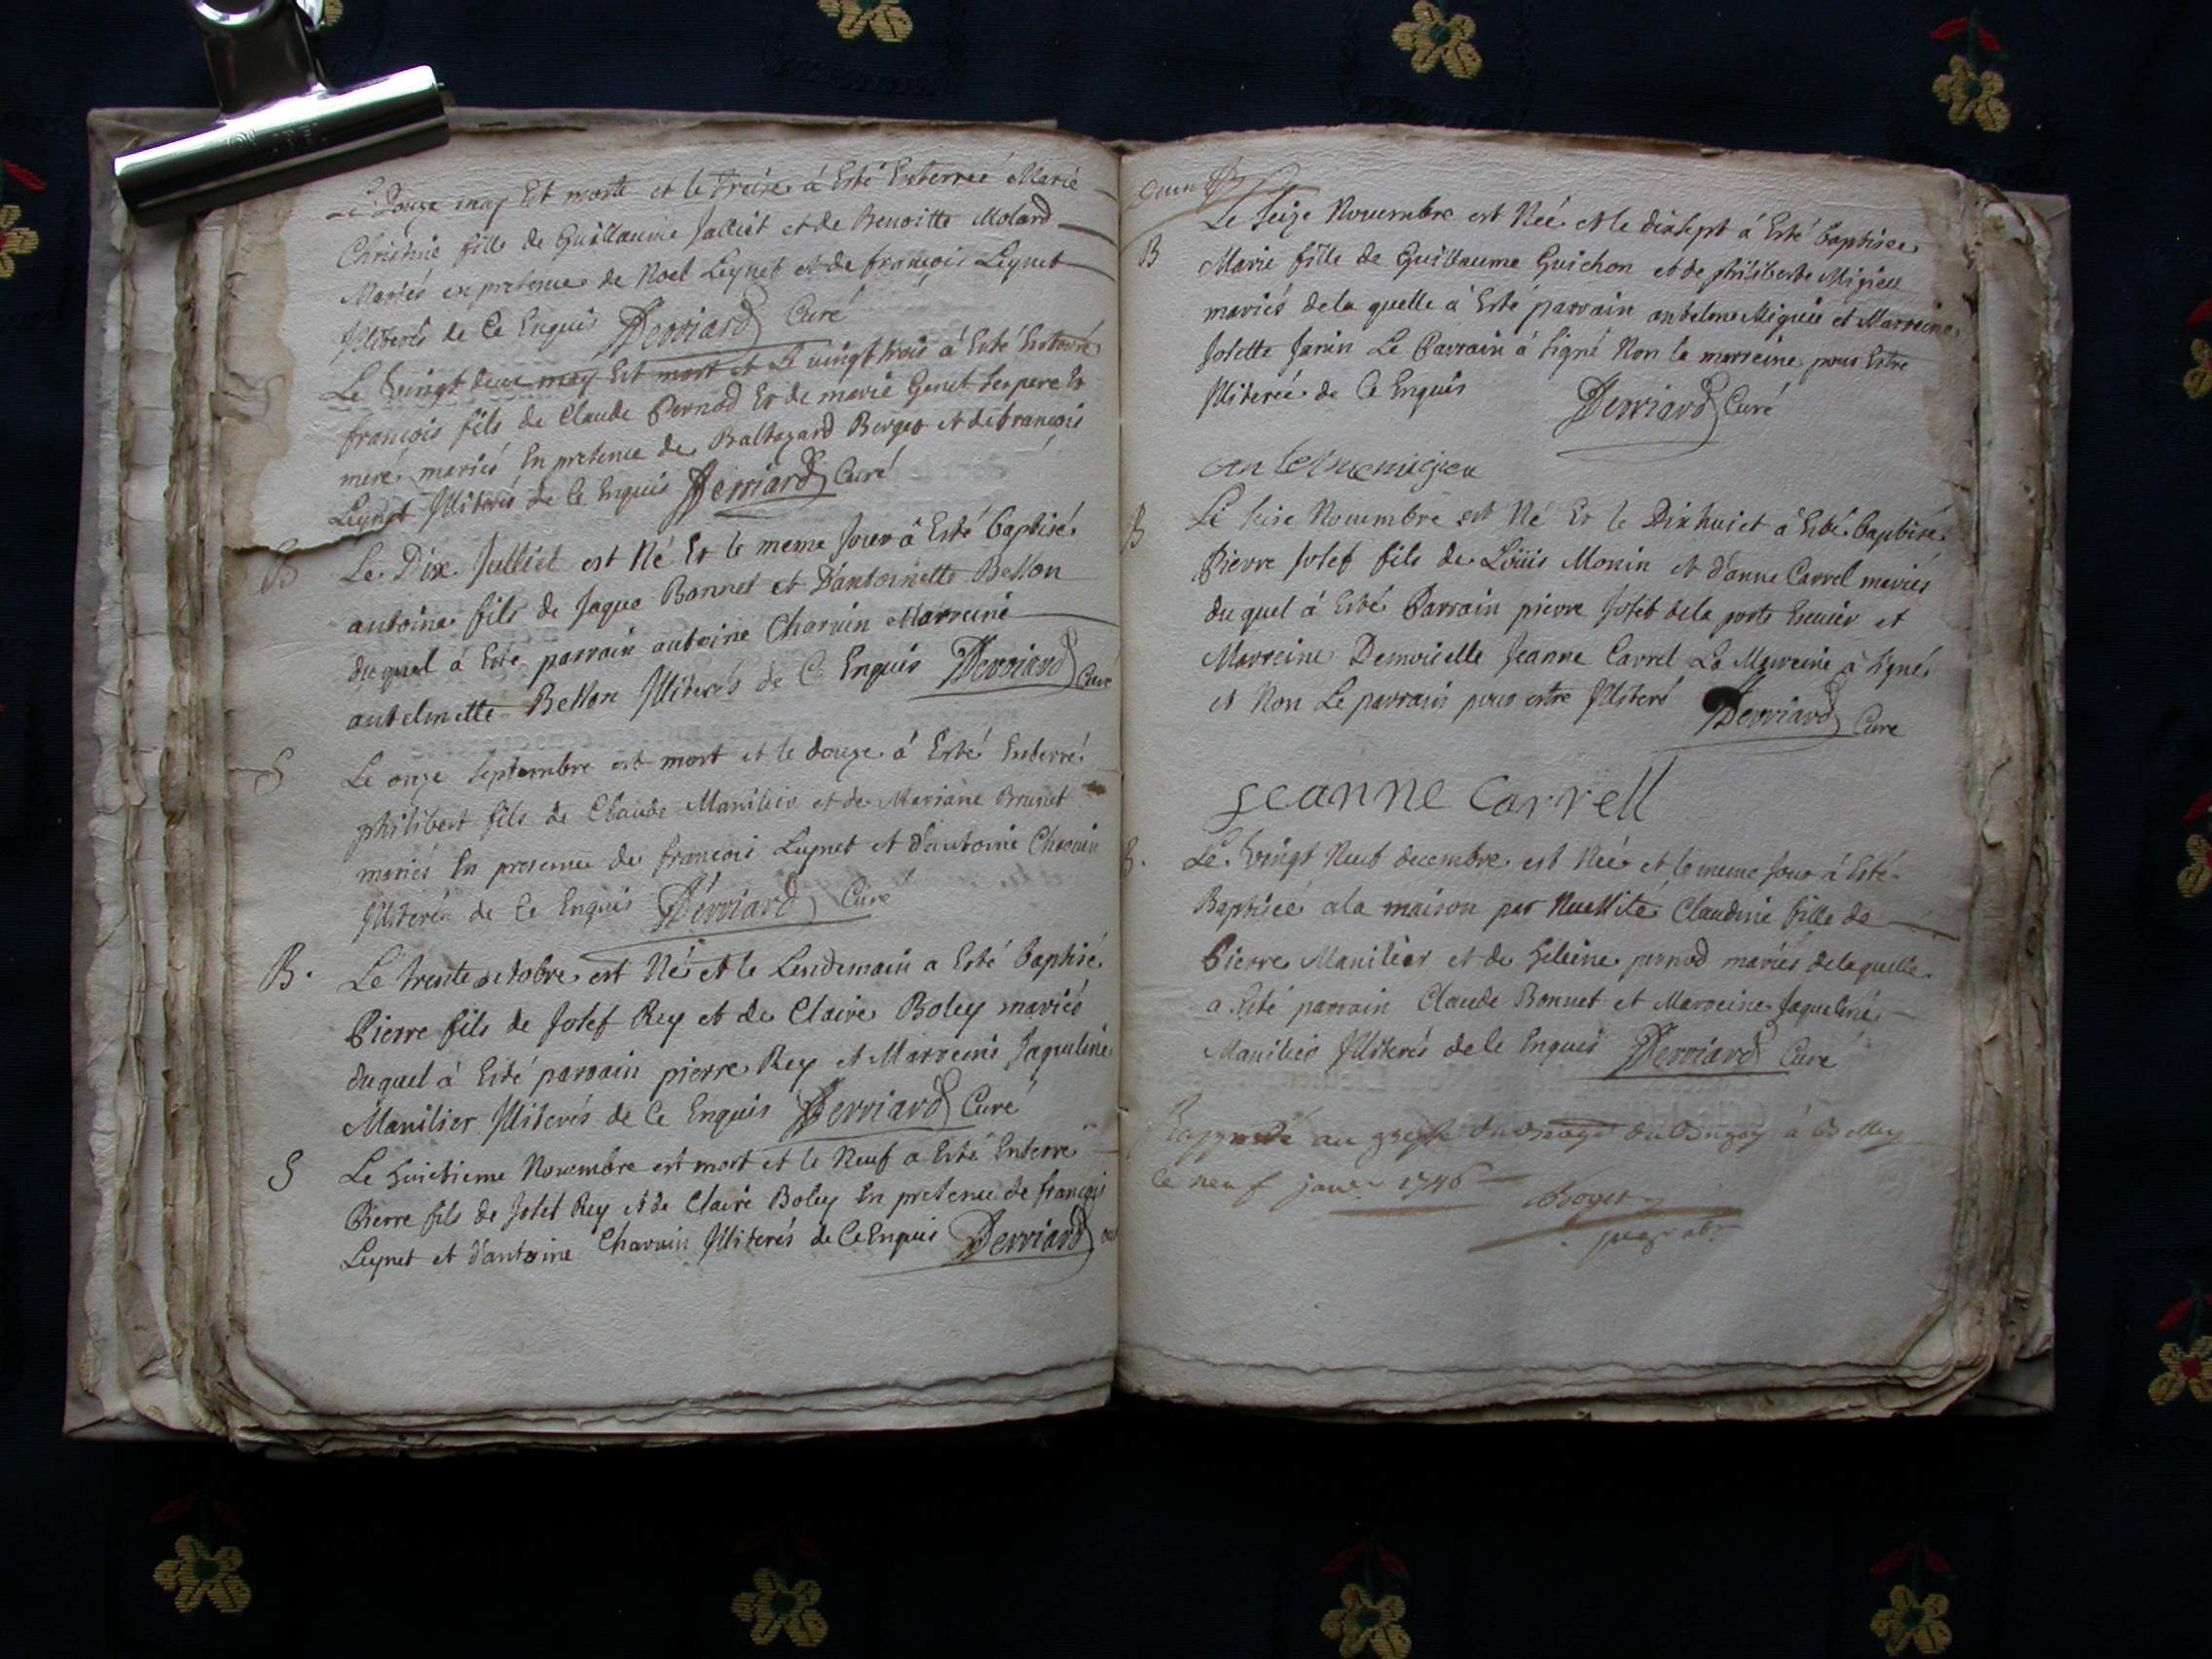 Le Douze may Est morte et le treize à Esté Enterreé Marie
Christine fille de Guillaume Jalliet et de Benoitte Molard
Mariés en presence de Noel Leynet et de françois Leynet
Illiterés de Ce Enquis Derriard Curé
Le Vingt deux may Est mort et Le vingt trois à Esté Enterré
françois fils de Claude Pernod Et de marie Genet ses pere Et
mere mariés En presence de Baltazard Berger et de françois
Leynet Illiterés de Ce Enquis Derriard Curé
B Le Dix Julliet est Né Et le meme Jour à Esté baptisé
antoine fils de Jaque Bonnet et D'antoinette Bellon
du quel à Esté parrain antoine Charvin Marreine
antelmette Bellon Illiterés de Ce Enquis Derriard Curé
S Le onze Septembre est mort et le douze à Esté Enterré
philibert fils de Claude Manilier et de Mariane Brunet
mariés En presence de françois Leynet et d'antoine Charvin
Illiterés de Ce Enquis Derriard Curé
B. Le trente octobre est Né et le Lendemain a Esté baptisé
Pierre fils de Josef Rey et de Claire Boley mariés
duquel à Esté parrain pierre Rey et Marreine Jaqueline
Manilier Illiterés de Ce Enquis Derriard Curé
S Le huictieme Novembre est mort et le Neuf a Esté Enterré
Pierre fils de Josef Rey et de Claire Boley En presence de françois
Leynet et d'antoine Charvin Illiterés de Ce Enquis Derriard
Le Seize Novembre est Neé et le dixsept à Esté baptisée
B Marie fille de Guillaume Guichon et de philiberte Migieu
mariés de la quelle à Esté parrain antelme Migieu et Marreine
Josette Janin Le Parrain à signé Non la marreine pour Estre
Illitereé de Ce Enquis Derriard Curé
antelme migieu
B Le Seize Novembre est Né Et le Dixhuict à Esté baptisé
Pierre Josef fils de Loüis Monin et d'anne Carrel mariés
du quel à Esté Parrain pierre Josef dela porte Ecuier et
Marreine Demoiselle Jeanne Carrel La Marreine à signé
et Non Le parrain pour estre Illiteré Derriard Cure
jeanne carrell
B. Le Vingt Neuf decembre est Neé et le meme Jour à Esté
Baptiseé a la maison par Necessité Claudine fille de
Pierre Manilier et de heleine pernod mariés de laquelle
a Esté parrain Claude Bonnet et Marreine Jaqueline
Manilier Illiterés de Ce Enquis Derriard Curé
au greffe du Bugey à Belley
Ce neuf janvr 1746